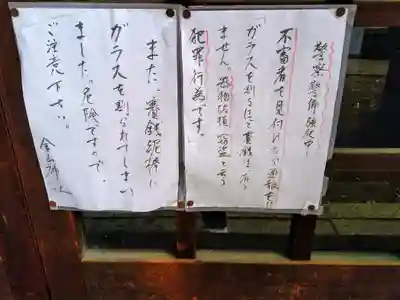 警察 警備強化中!
不審者を見付けたら通報を!!
「ガラスを割るほど賽銭は有り
ません。器物破損 窃盗と云う
犯罪行為です。」
また、賽銭泥棒に
ガラスを割られてしまい
ました。危険ですので、
ご注意下さい。